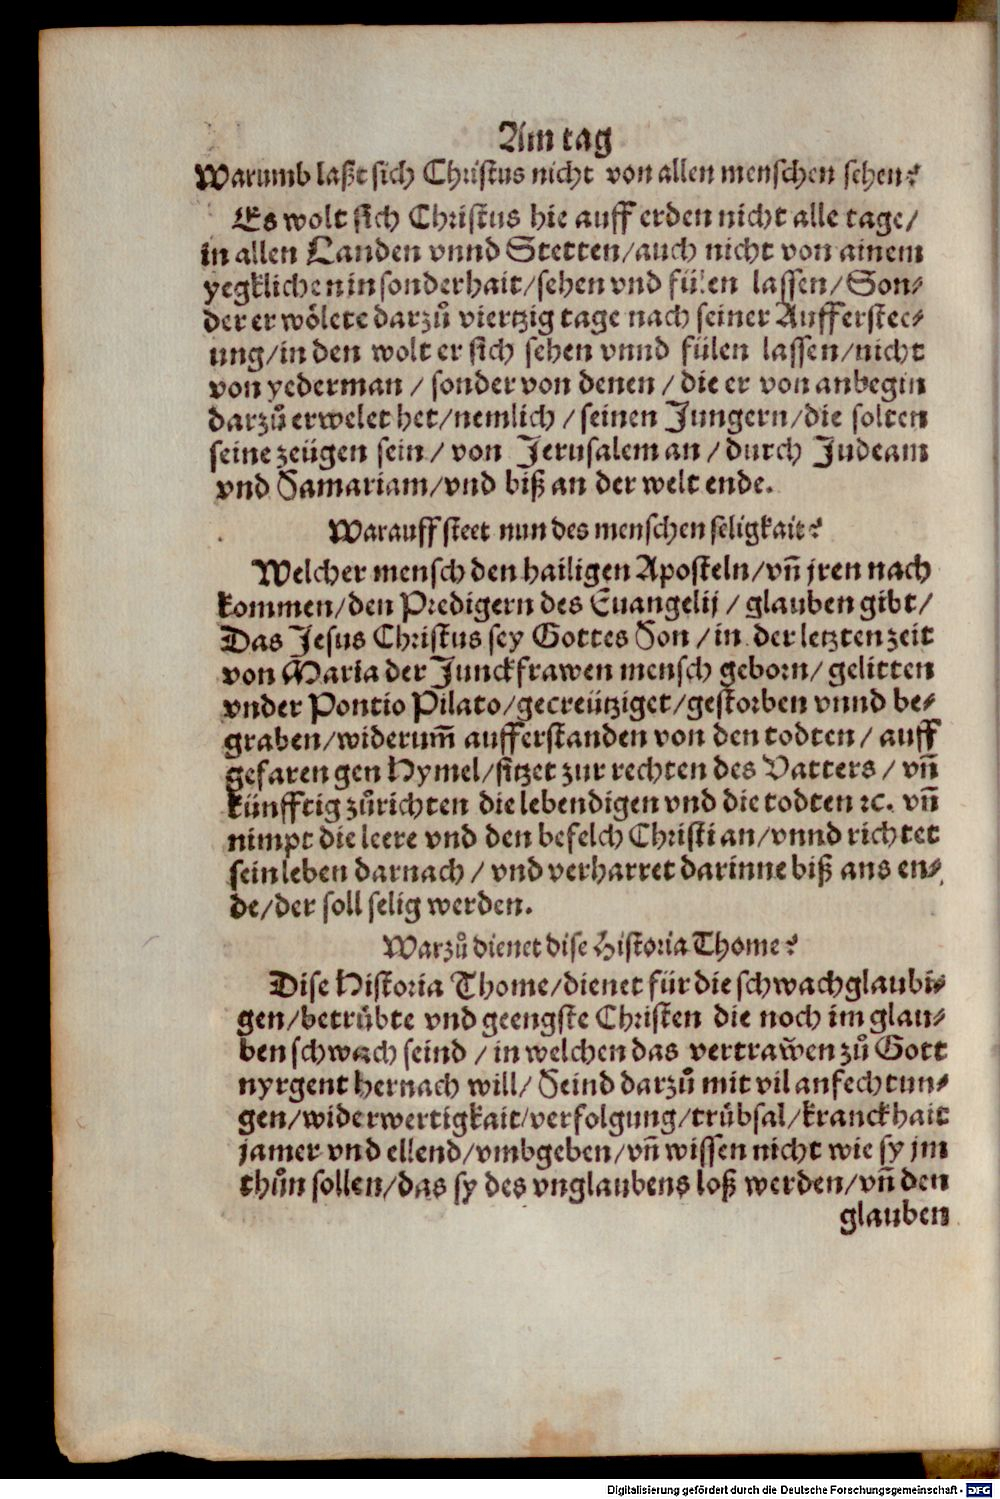 Am tag
Warumb laßt sich Christus nicht von allen menschen sehen?
Es wolt sich Christus hie auff erden nicht alle tage/
in allen Landen vnnd Stetten/auch nicht von ainem
yegklichen in sonderhait/sehen vnd fülen lassen/Son⸗
der er wölete darzů viertzig tage nach seiner Aufferstee⸗
ung/in den wolt er sich sehen vnnd fülen lassen/nicht
von yederman / sonder von denen / die er von anbegin
darzů erwelet het/nemlich / seinen Jungern/die solten
seine zeügen sein/ von Jerusalem an / durch Judeam
vnd Samariam/vnd biß an der welt ende.
Warauff steet nun des menschen seligkait?
Welcher mensch den hailigen Aposteln/vñ jren nach
kommen/den Predigern des Euangelij / glauben gibt/
Das Jesus Christus sey Gottes Son / in der letzten zeit
von Maria der Junckfrawen mensch geborn/ gelitten
vnder Pontio Pilato/gecreütziget/gestorben vnnd be⸗
graben/widerum̃ aufferstanden von den todten / auff
gefaren gen Hymel/sitzet zur rechten des Vatters / vñ
künfftig zůrichten die lebendigen vnd die todten ꝛc. vñ
nimpt die leere vnd den befelch Christi an/vnnd richtet
sein leben darnach / vnd verharret darinne biß ans en⸗
de/der soll selig werden.
Warzů dienet dise Historia Thome?
Dise Historia Thome/dienet für die schwachglaubi⸗
gen/betrübte vnd geengste Christen die noch im glau⸗
ben schwach seind / in welchen das vertrawen zů Gott
nyrgent hernach will/ Seind darzů mit vil anfechtun⸗
gen/widerwertigkait/verfolgung/trübsal/kranckhait
jamer vnd ellend/vmbgeben/vñ wissen nicht wie sy jm
thůn sollen/das sy des vnglaubens loß werden/vñ den
glauben
Digitalisierung gefördert durch die Deutsche Forschungsgemeinschaft - DFG